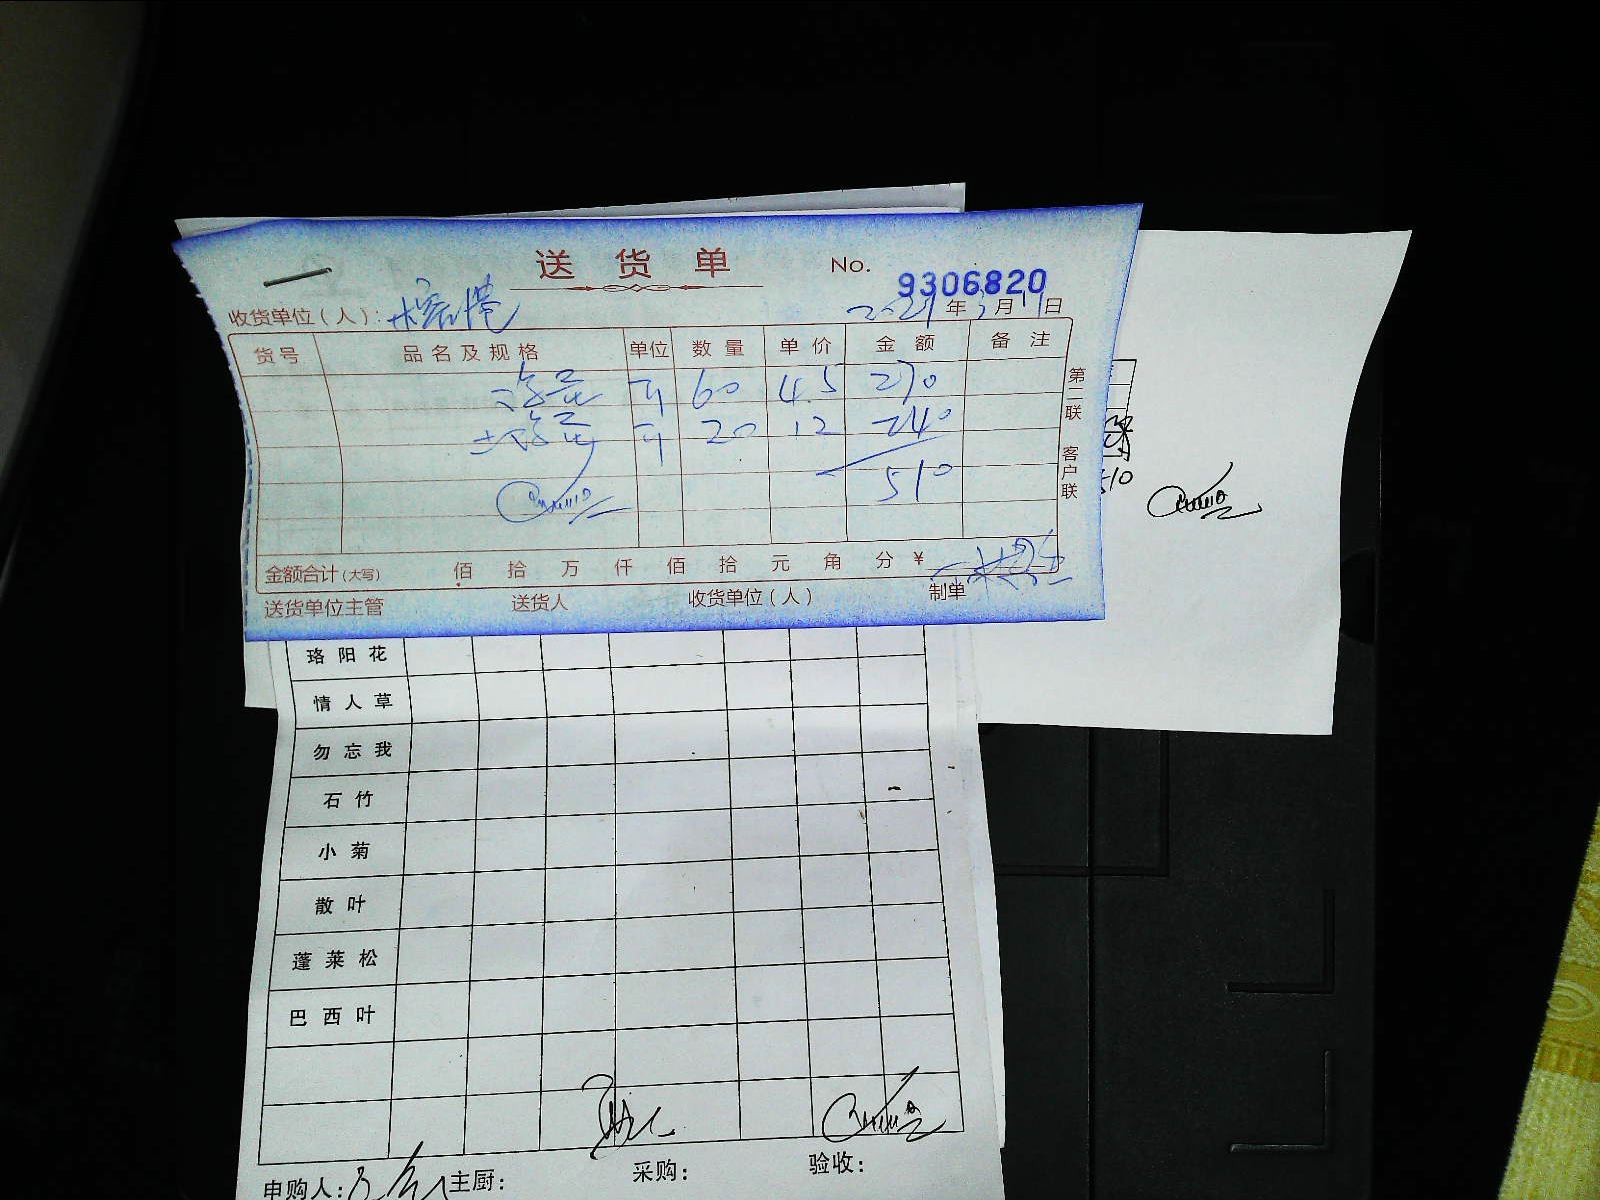 送货单 No. 9306820
收货单位(人): 年 3 月 日
货号 品名及规格 单位 数量 单价 金额 备注
60 4.5 270
20 12 240
510
第二联 客户联
金额合计(大写) 佰 拾 万 仟 佰 拾 元 角 分 ¥
送货单位主管 送货人 收货单位(人) 制单
510
珞阳花
情人草
勿忘我
石竹
小菊
散叶
蓬莱松
巴西叶
申购人: 主厨: 采购: 验收: